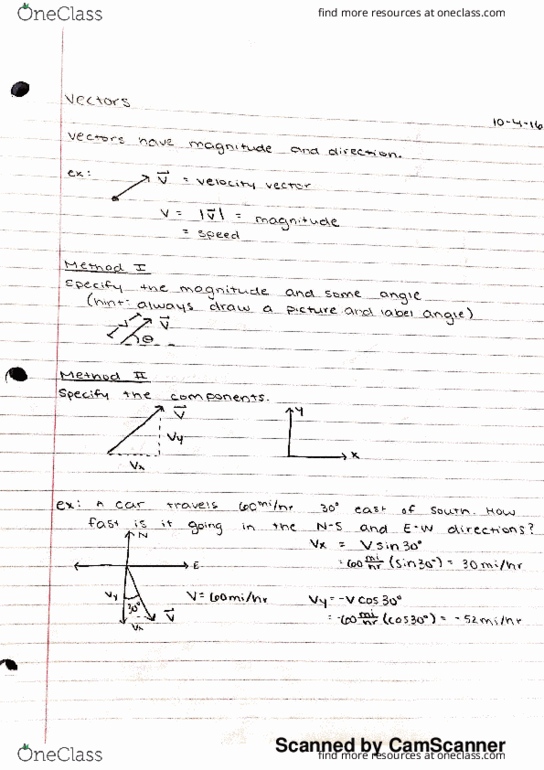 OneClass
find more resources at oneclass.com
Vectors
10-4-16
Vectors have magnitude and direction.
ex: v⃗ = velocity vector
v = |v⃗| = magnitude
= speed
Method I
Specify the magnitude and some angle
(hint: always draw a picture and label angle)
v v⃗
θ
Method II
Specify the components.
v⃗ y
Vy
Vx x
ex: A car travels 60 mi/hr 30° east of south. How
fast is it going in the N-S and E-W directions?
N Vx = V sin 30°
E = 60 mi/hr (sin 30°) = 30 mi/hr
Vy 30° V = 60 mi/hr Vy = -V cos 30°
Vx v⃗ = -60 mi/hr (cos 30°) = -52 mi/hr
Scanned by CamScanner
OneClass
find more resources at oneclass.com